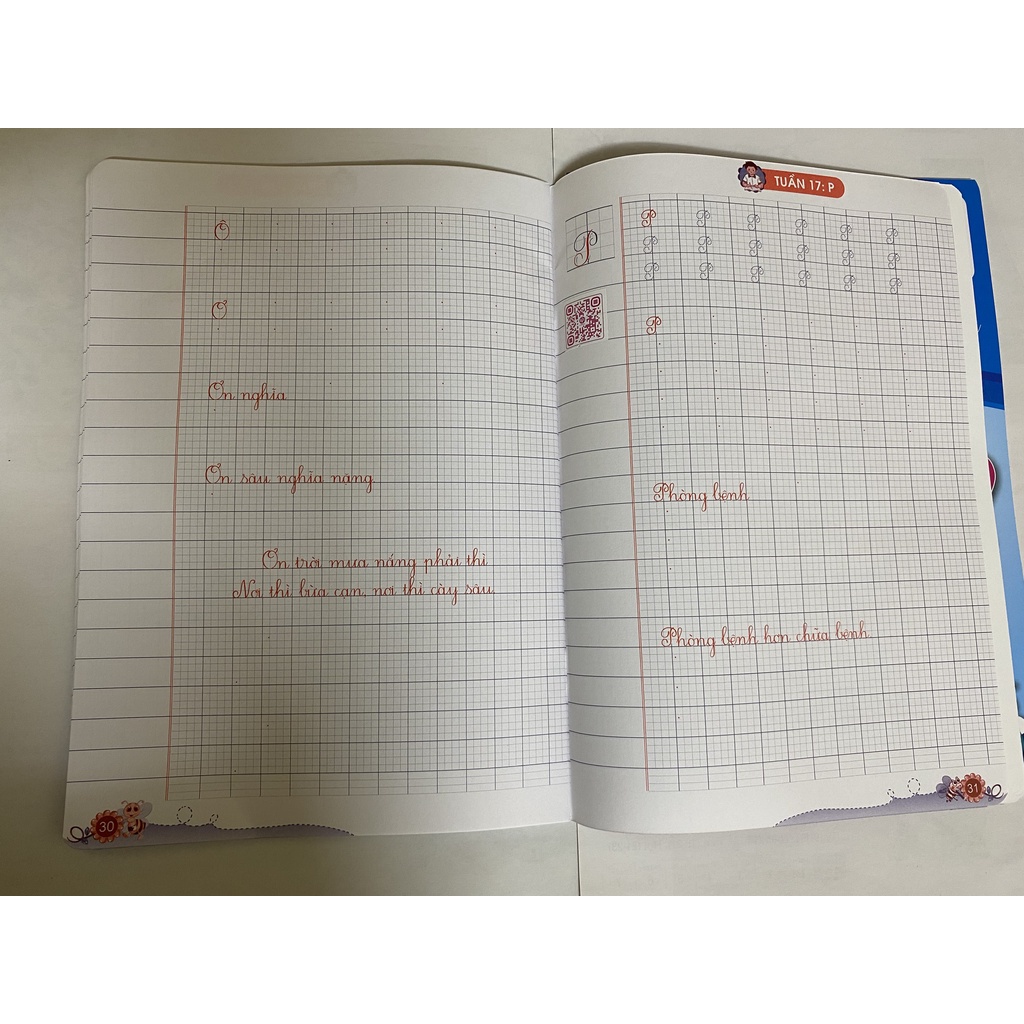 Ô
Ơ
Ơn nghĩa
Ơn sâu nghĩa nặng
Ơn trời mưa nắng phải thì
Nơi thì bừa cạn, nơi thì cày sâu.
30
TUẦN 17: P
P
P P P P P P
P P P P P P
P P P P P P
P
Phòng bệnh
Phòng bệnh hơn chữa bệnh.
31